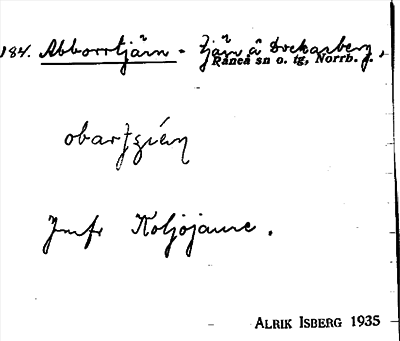 184. Abborrtjärn - Tjärn å Dockasberg,
Råneå sn o. tg, Norrb. l.
Jmfr Koljojaure.
ALRIK ISBERG 1935